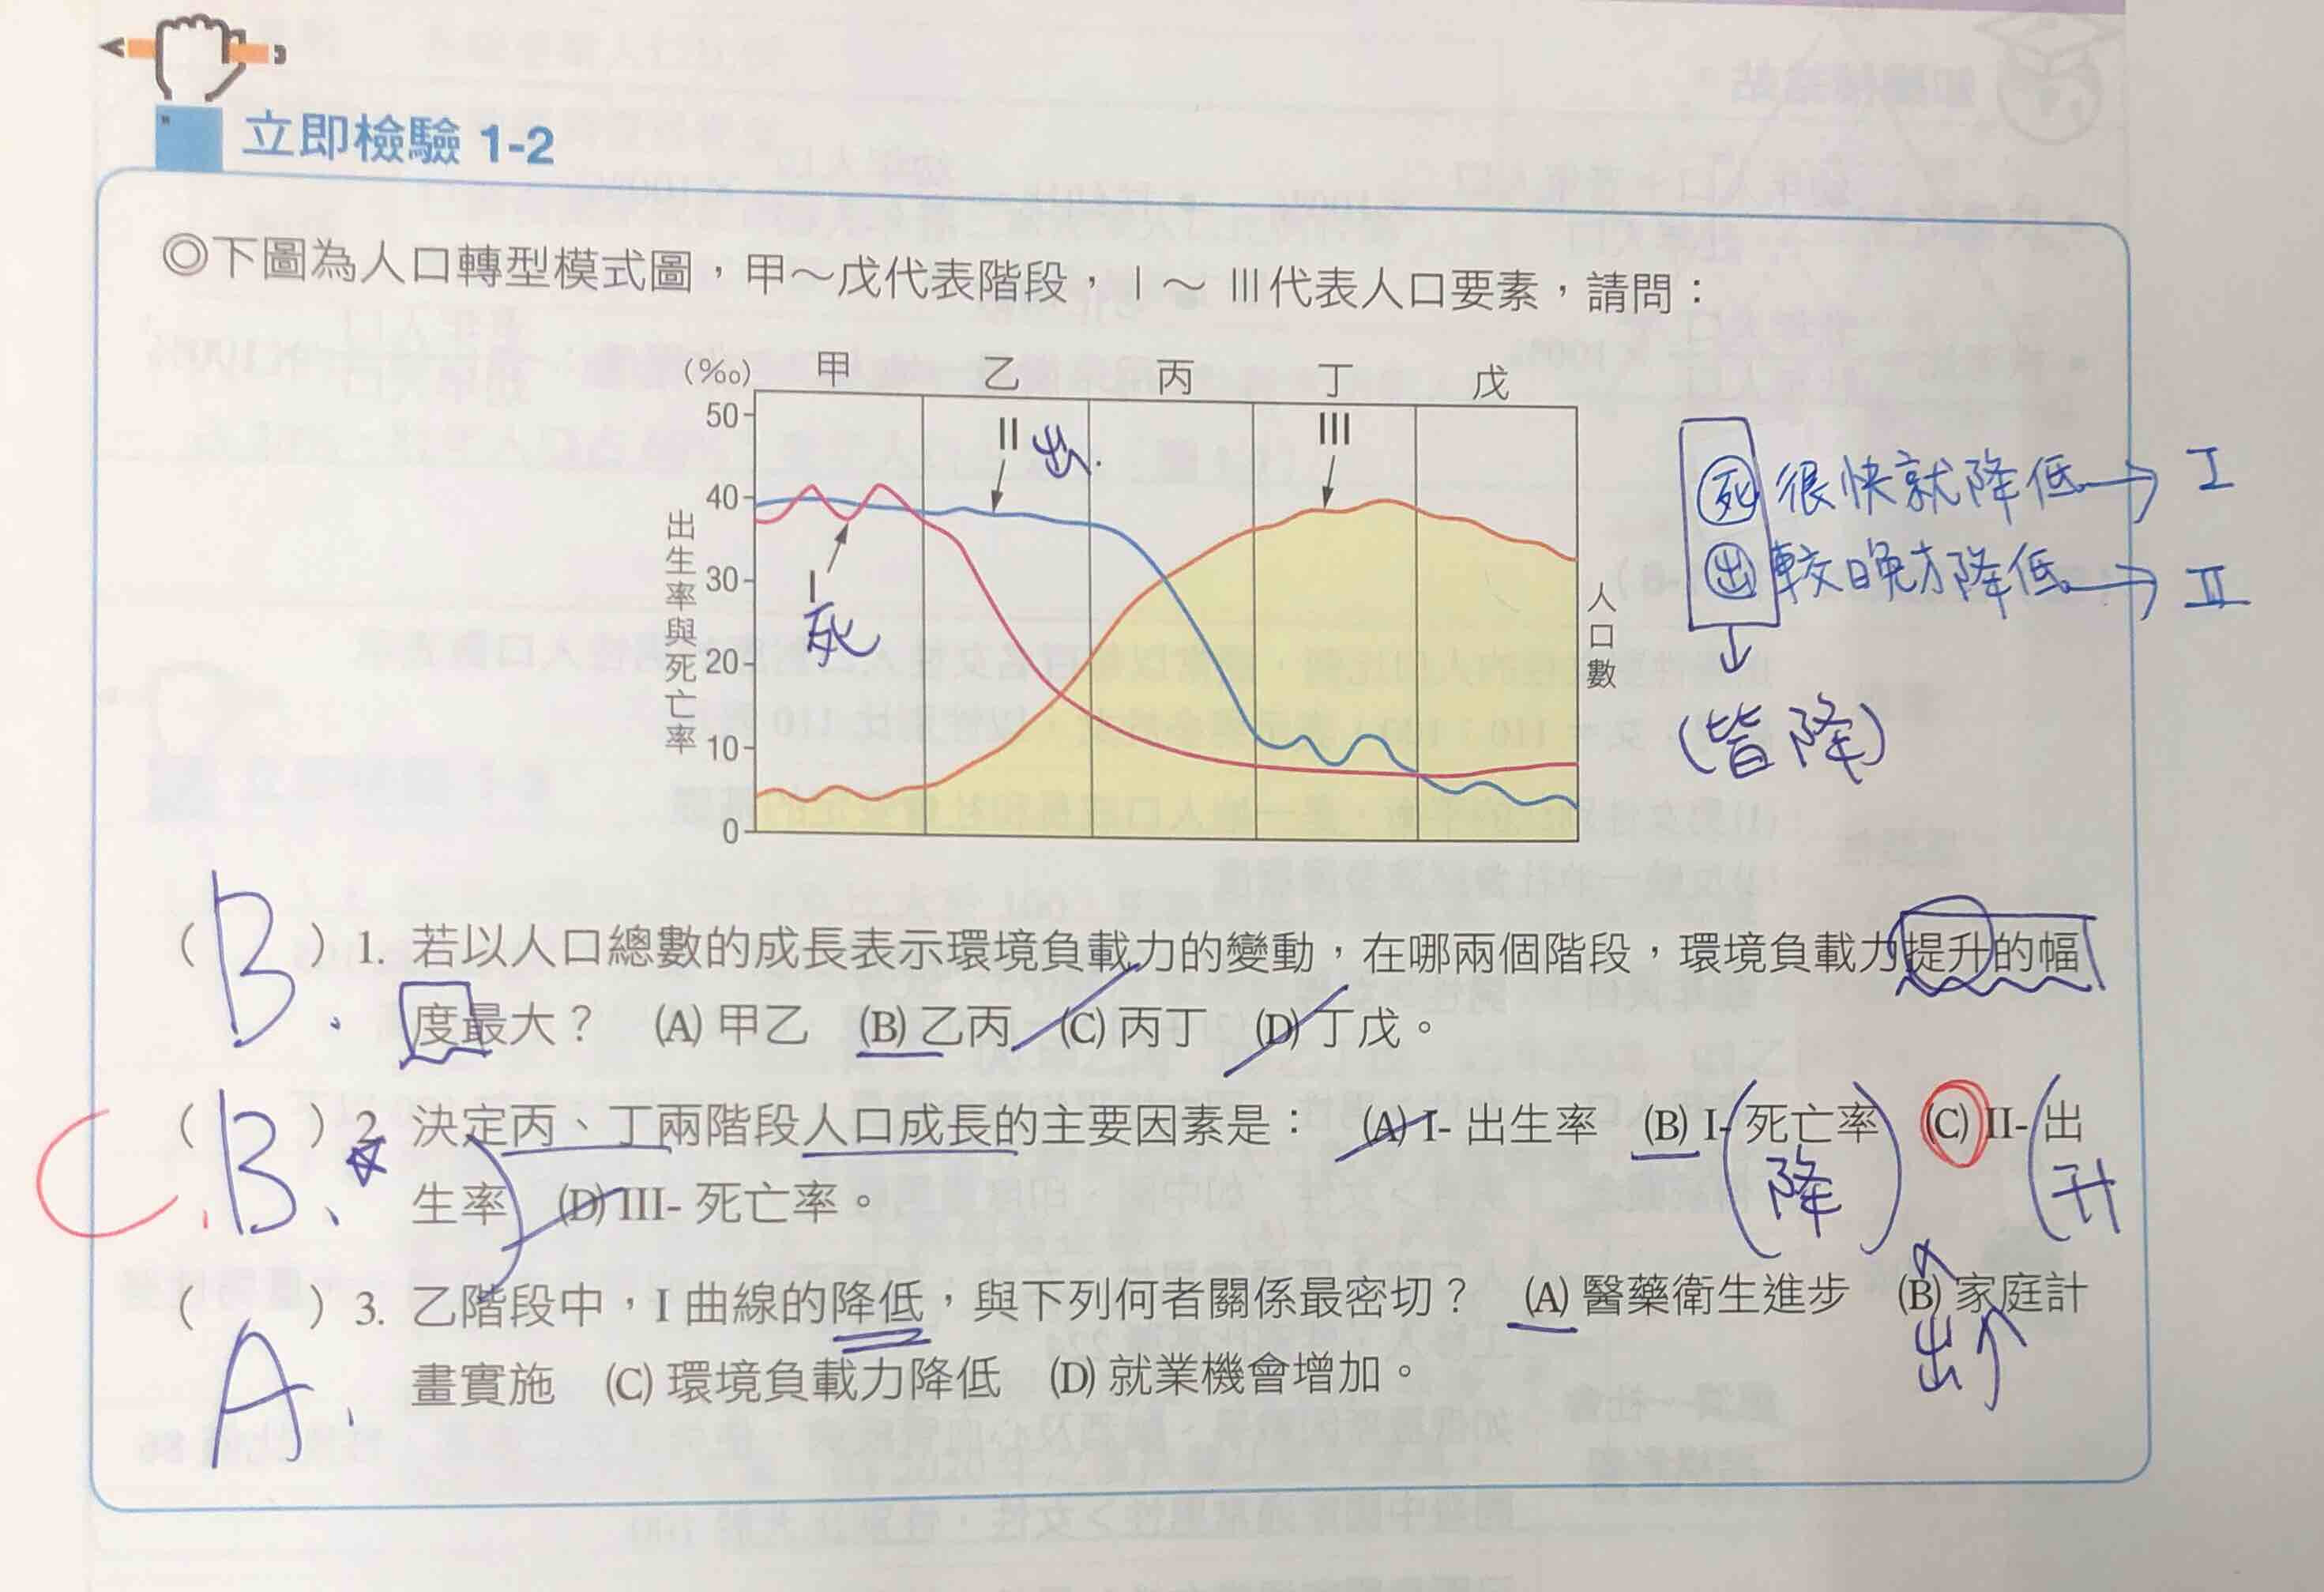 立即檢驗 1-2
◎下圖為人口轉型模式圖，甲～戊代表階段，I～III代表人口要素，請問：
(‰) 甲 乙 丙 丁 戊
50
40
30
20
10
0
出生率與死亡率
人口數
II 出
III
I
死
死 很快就降低→ I
出 較晚才降低→ II
(皆降)
（B.）1. 若以人口總數的成長表示環境負載力的變動，在哪兩個階段，環境負載力提升的幅
度最大？ (A) 甲乙 (B) 乙丙 (C) 丙丁 (D) 丁戊。
C.（B、）2. 決定丙、丁兩階段人口成長的主要因素是： (A) I- 出生率 (B) I- 死亡率 (C) II- 出
降 升
生率 (D) III- 死亡率。
（ ）3. 乙階段中，I 曲線的降低，與下列何者關係最密切？ (A) 醫藥衛生進步 (B) 家庭計
A.
出↑
畫實施 (C) 環境負載力降低 (D) 就業機會增加。